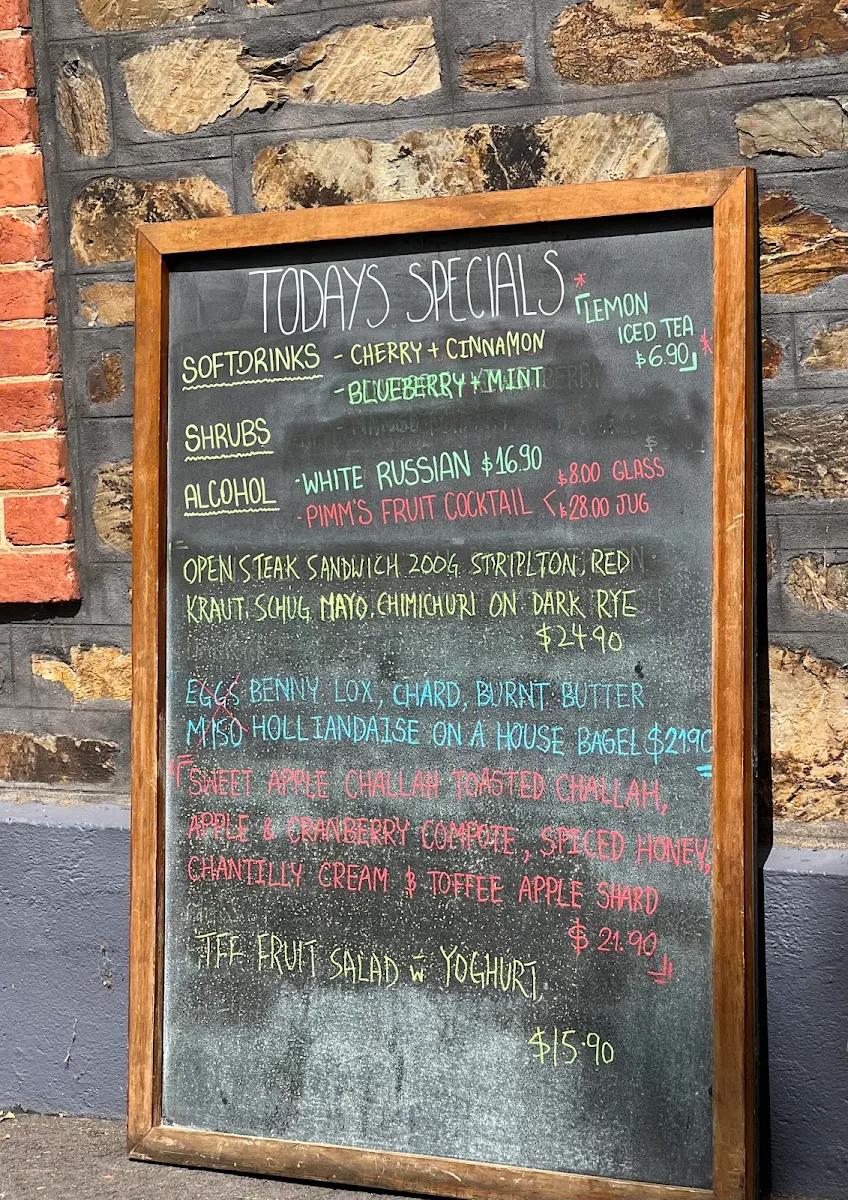 TODAYS SPECIALS
* LEMON
ICED TEA *
$6.90
SOFTDRINKS - CHERRY + CINNAMON
- BLUEBERRY + MINT
SHRUBS
ALCOHOL - WHITE RUSSIAN $16.90
- PIMM'S FRUIT COCKTAIL < $8.00 GLASS
$28.00 JUG
OPEN STEAK SANDWICH 200G STRIPLTON, RED
KRAUT, SCHUG MAYO, CHIMICHURI ON DARK RYE
$24.90
EGGS BENNY LOX, CHARD, BURNT BUTTER
MISO HOLLIANDAISE ON A HOUSE BAGEL $21.90
SWEET APPLE CHALLAH TOASTED CHALLAH,
APPLE & CRANBERRY COMPOTE, SPICED HONEY,
CHANTILLY CREAM & TOFFEE APPLE SHARD
$21.90
FRUIT SALAD W YOGHURT
$15.90